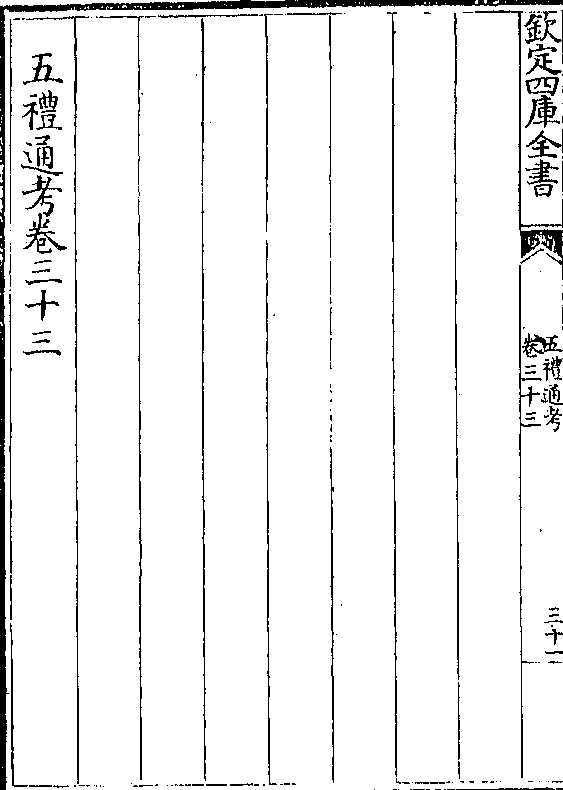 欽定四庫全書
五禮通考
卷三十三
三十一
五禮通考卷三十三